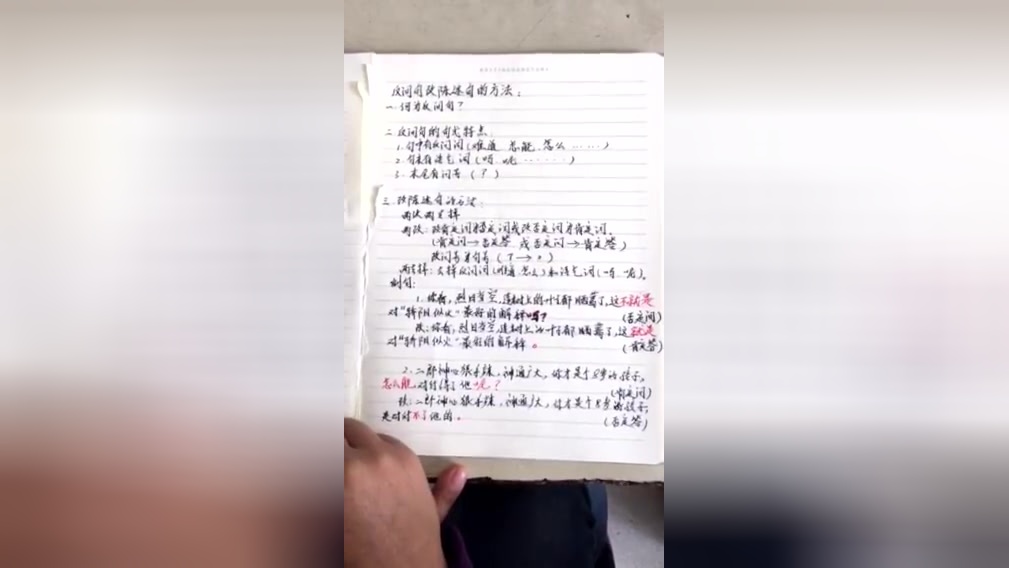 反问句改陈述句的方法:
一.何为反问句?
二.反问句的句式特点:
1.句中有反问词(难道 怎能 怎么 ……)
2.句末有语气词(吗 呢 ……)
3.末尾有问号(?)
三.改陈述句的方法:
两改两去掉
两改:改肯定词为否定词或改否定词为肯定词。
(肯定问→否定答 或 否定问→肯定答)
改问号为句号(?→。)
两去掉:去掉反问词(难道.怎么)和语气词(吗 呢)。
例句:
1.你看,烈日当空,连树上的叶子都晒蔫了,这不就是
对"骄阳似火"最好的解释吗?(否定问)
改:你看,烈日当空,连树上的叶子都晒蔫了,这就是
对"骄阳似火"最好的解释。(肯定答)
2.二郎神心狠手辣,神通广大,你才是个8岁的孩子,
怎么能对付得了他呢?(肯定问)
改:二郎神心狠手辣,神通广大,你才是个8岁的孩子,
是对付不了他的。(否定答)